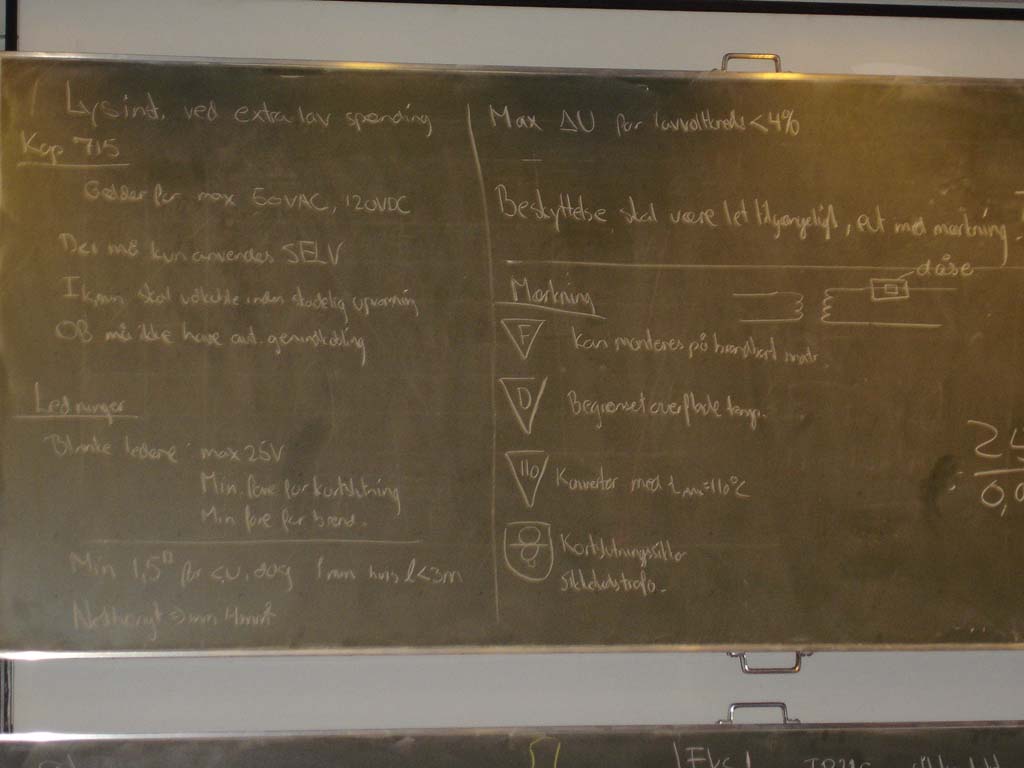 Lysinst. ved extra lav spænding
Kap 715
Gælder for max 50VAC, 120VDC
Der må kun anvendes SELV
Ik,min skal udkoble inden skadelig opvarmning
OB må ikke have aut. genindkobling
Ledninger
Blanke ledere: max 25V
Min. fare for kortslutning
Min fare for brand.
Min 1,5 for CU, dog 1mm hvis l<3m
=> min 4mm²
Max ΔU for lavvoltkreds <4%
Beskyttelse skal være let tilgængeligt, evt med mærkning.
dåse
Mærkning
F Kan monteres på brændbart mat.
D Begrænset overflade temp.
110 Konverter med tmax=110°C
Kortslutningssikker
sikkerhedstrafo.
2
0,